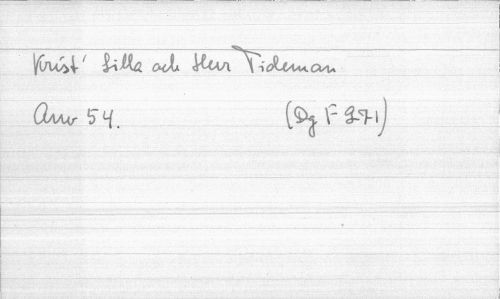 Krist' Lilla och Herr Tideman
Arw 54. (Dg F 271)